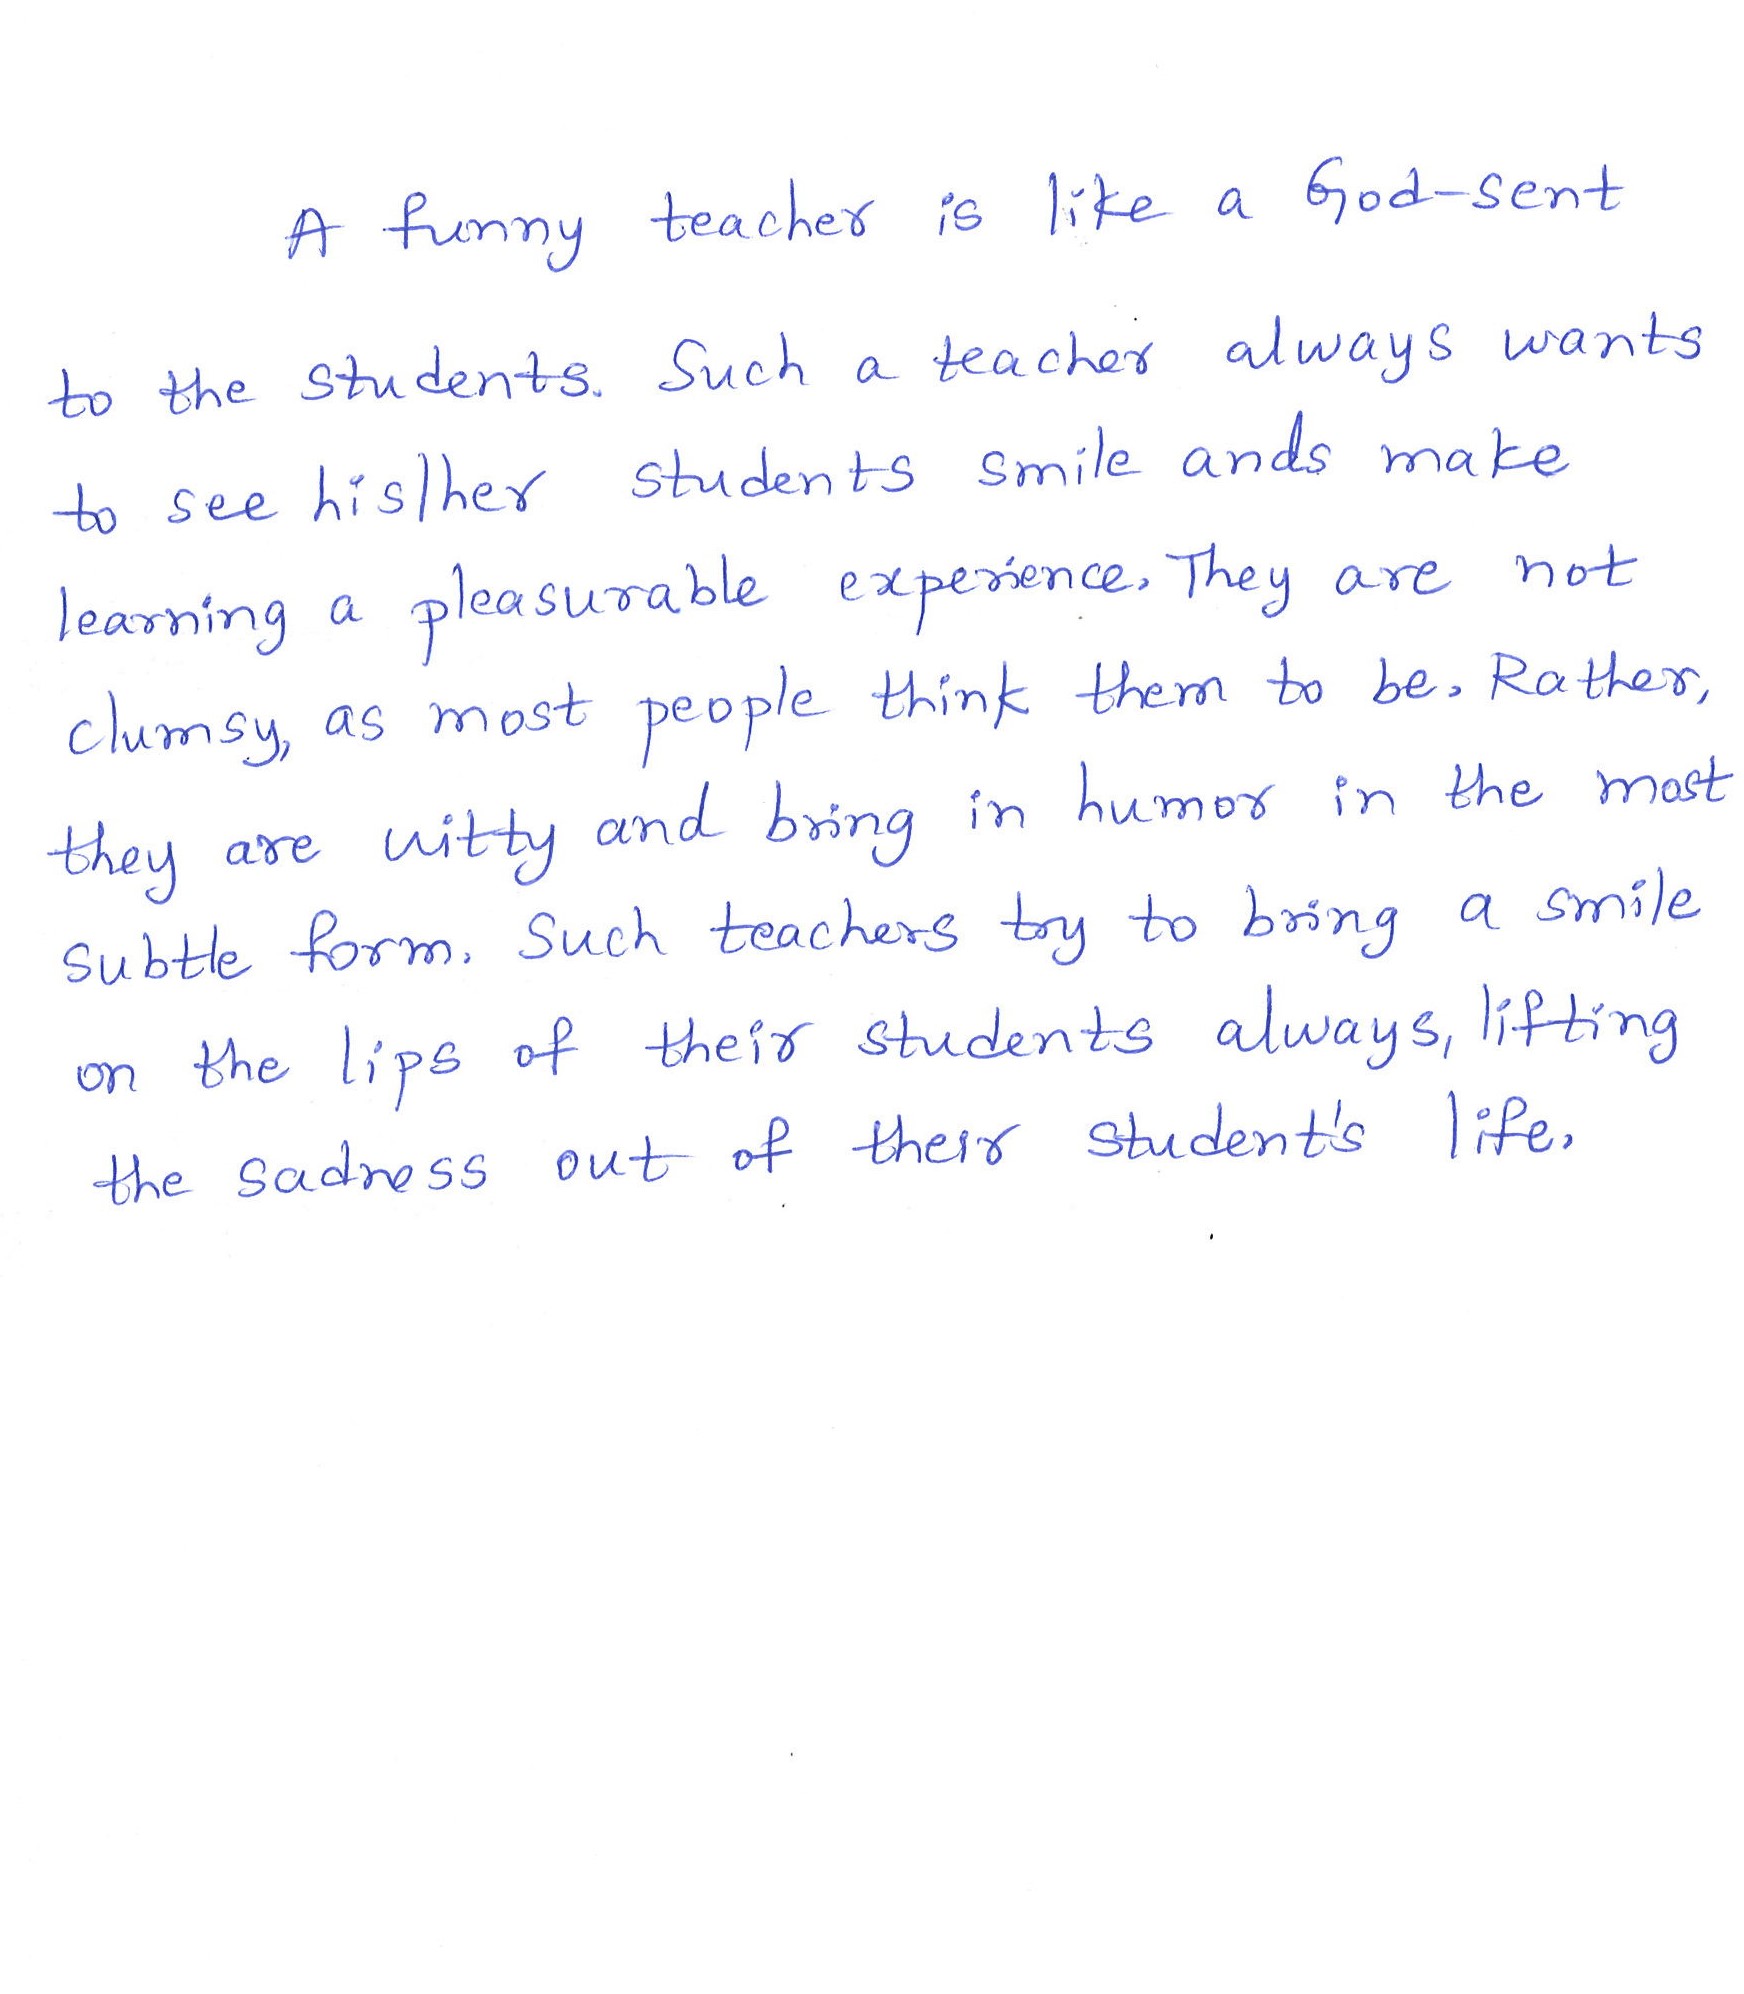 A funny teacher is like a God-sent
to the students. Such a teacher always wants
to see his/her students smile ands make
learning a pleasurable experience. They are not
clumsy, as most people think them to be. Rather,
they are witty and bring in humor in the most
subtle form. Such teachers try to bring a smile
on the lips of their students always, lifting
the sadness out of their student's life.